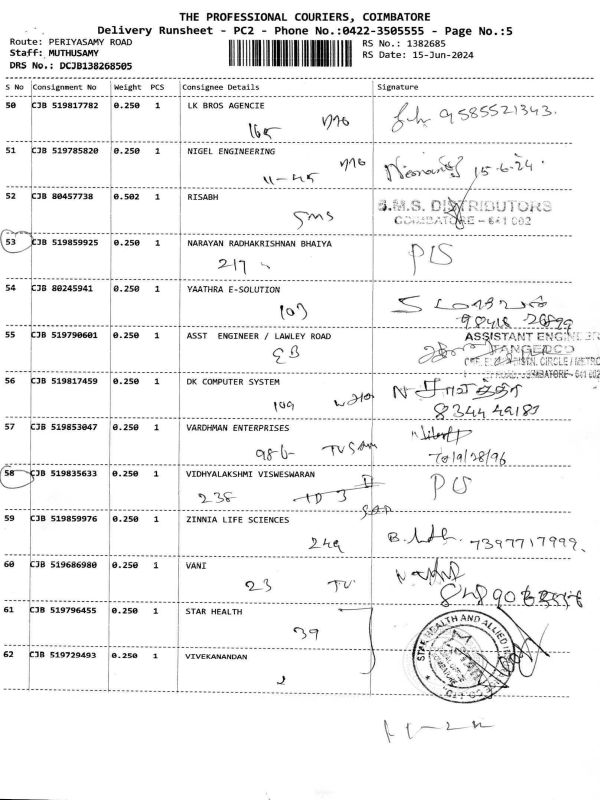 THE PROFESSIONAL COURIERS, COIMBATORE
Delivery Runsheet - PC2 - Phone No.:0422-3505555 - Page No.:5
Route: PERIYASAMY ROAD
RS No.: 1382685
Staff: MUTHUSAMY
RS Date: 15-Jun-2024
DRS No.: DCJB138268505
S No Consignment No Weight PCS Consignee Details Signature
50 CJB 519817782 0.250 1 LK BROS AGENCIE
165 9585521343.
51 CJB 519785820 0.250 1 NIGEL ENGINEERING
11-45 15-6-24.
52 CJB 80457738 0.502 1 RISABH
SMS
S.M.S. DISTRIBUTORS
COIMBATORE - 641 002
53 CJB 519859925 0.250 1 NARAYAN RADHAKRISHNAN BHAIYA
217 PLS
54 CJB 80245941 0.250 1 YAATHRA E-SOLUTION
107
55 CJB 519790601 0.250 1 ASST ENGINEER / LAWLEY ROAD
EB
ASSISTANT ENGINEER
TANGEDCO
56 CJB 519817459 0.250 1 DK COMPUTER SYSTEM
109
57 CJB 519853047 0.250 1 VARDHMAN ENTERPRISES
986
58 CJB 519835633 0.250 1 VIDHYALAKSHMI VISWESWARAN
238 PLS
59 CJB 519859976 0.250 1 ZINNIA LIFE SCIENCES
249 7397717999.
60 CJB 519686980 0.250 1 VANI
23 TV
61 CJB 519796455 0.250 1 STAR HEALTH
39
STAR HEALTH AND ALLIED
62 CJB 519729493 0.250 1 VIVEKANANDAN